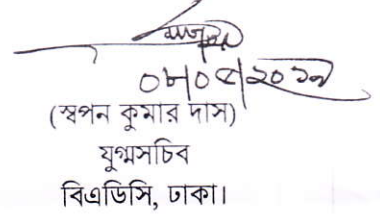 ০৮/০৫/২০১৭
(স্বপন কুমার দাস)
যুগ্মসচিব
বিএডিসি, ঢাকা।